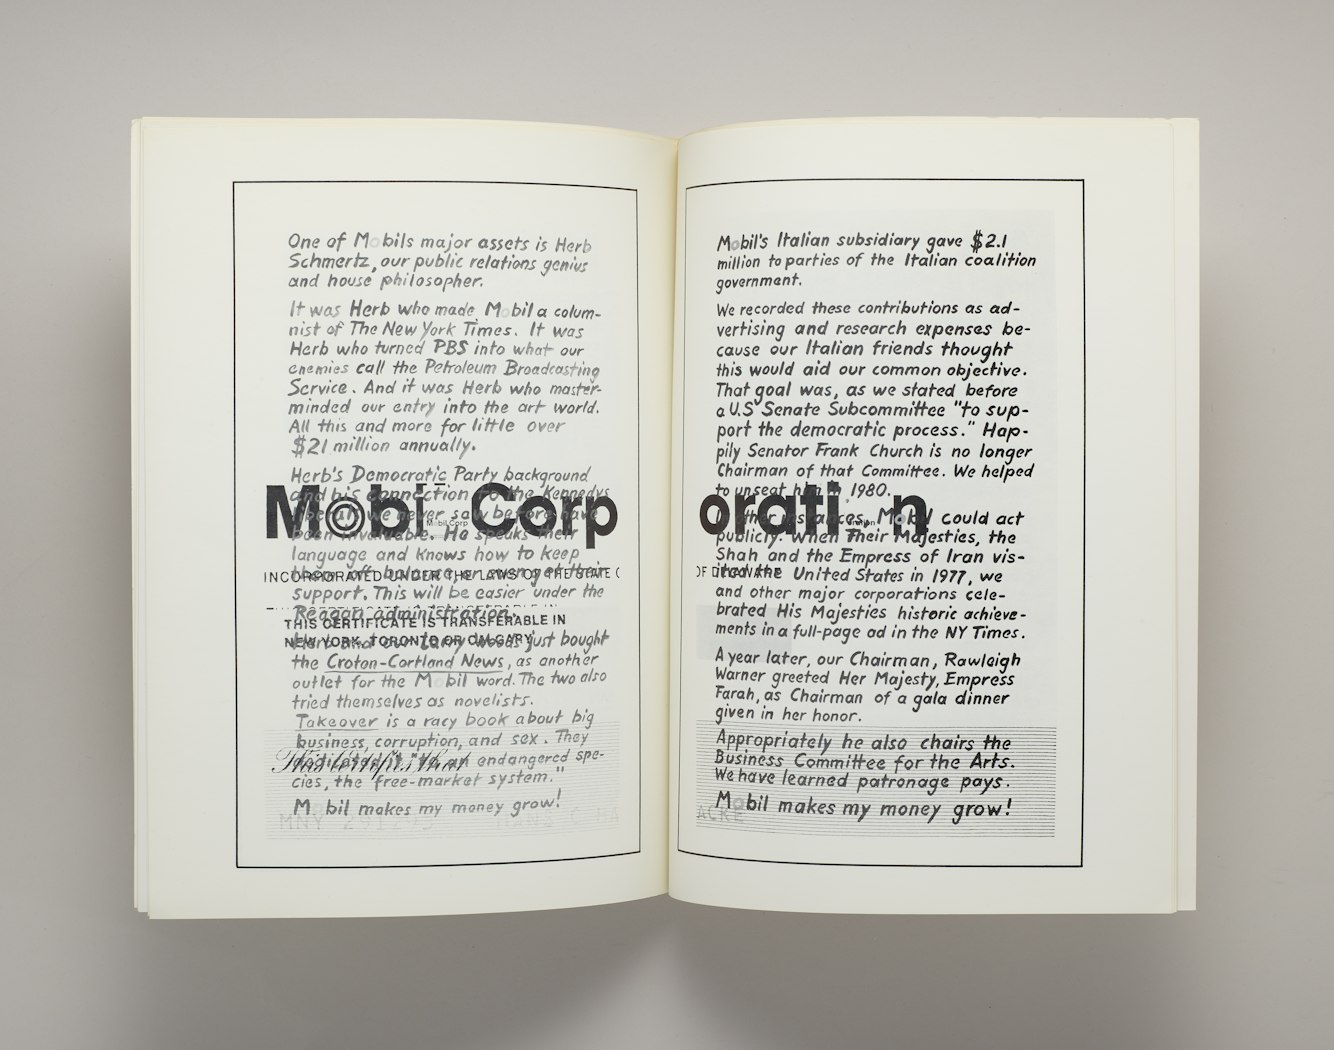 One of Mobils major assets is Herb
Schmertz, our public relations genius
and house philosopher.
It was Herb who made Mobil a colum-
nist of The New York Times. It was
Herb who turned PBS into what our
enemies call the Petroleum Broadcasting
Service. And it was Herb who master-
minded our entry into the art world.
All this and more for little over
$21 million annually.
Herb's Democratic Party background
and his connection to the Kennedys
liberals we never saw before have
been invaluable. He speaks their
language and knows how to keep
them off balance or swing
support. This will be easier under the
Reagan administration.
just bought
the Croton-Cortland News, as another
outlet for the Mobil word. The two also
tried themselves as novelists.
Takeover is a racy book about big
business, corruption, and sex. They
dedicated it "to an endangered spe-
cies, the free-market system."
Mobil makes my money grow!
Mobil Corp
Mobil Corp
INCORPORATED UNDER THE LAWS OF THE STATE
THIS CERTIFICATE IS TRANSFERABLE IN
NEW YORK, TORONTO OR CALGARY
This Certifies that
MNY
Mobil's Italian subsidiary gave $2.1
million to parties of the Italian coalition
government.
We recorded these contributions as ad-
vertising and research expenses be-
cause our Italian friends thought
this would aid our common objective.
That goal was, as we stated before
a U.S Senate Subcommittee "to sup-
port the democratic process." Hap-
pily Senator Frank Church is no longer
Chairman of that Committee. We helped
to unseat him in 1980.
In other instances, Mobil could act
publicly. When Their Majesties, the
Shah and the Empress of Iran vis-
ited the United States in 1977, we
and other major corporations cele-
brated His Majesties historic achieve-
ments in a full-page ad in the NY Times.
A year later, our Chairman, Rawleigh
Warner greeted Her Majesty, Empress
Farah, as Chairman of a gala dinner
given in her honor.
Appropriately he also chairs the
Business Committee for the Arts.
We have learned patronage pays.
Mobil makes my money grow!
oration
OF DELAWARE
ACKE